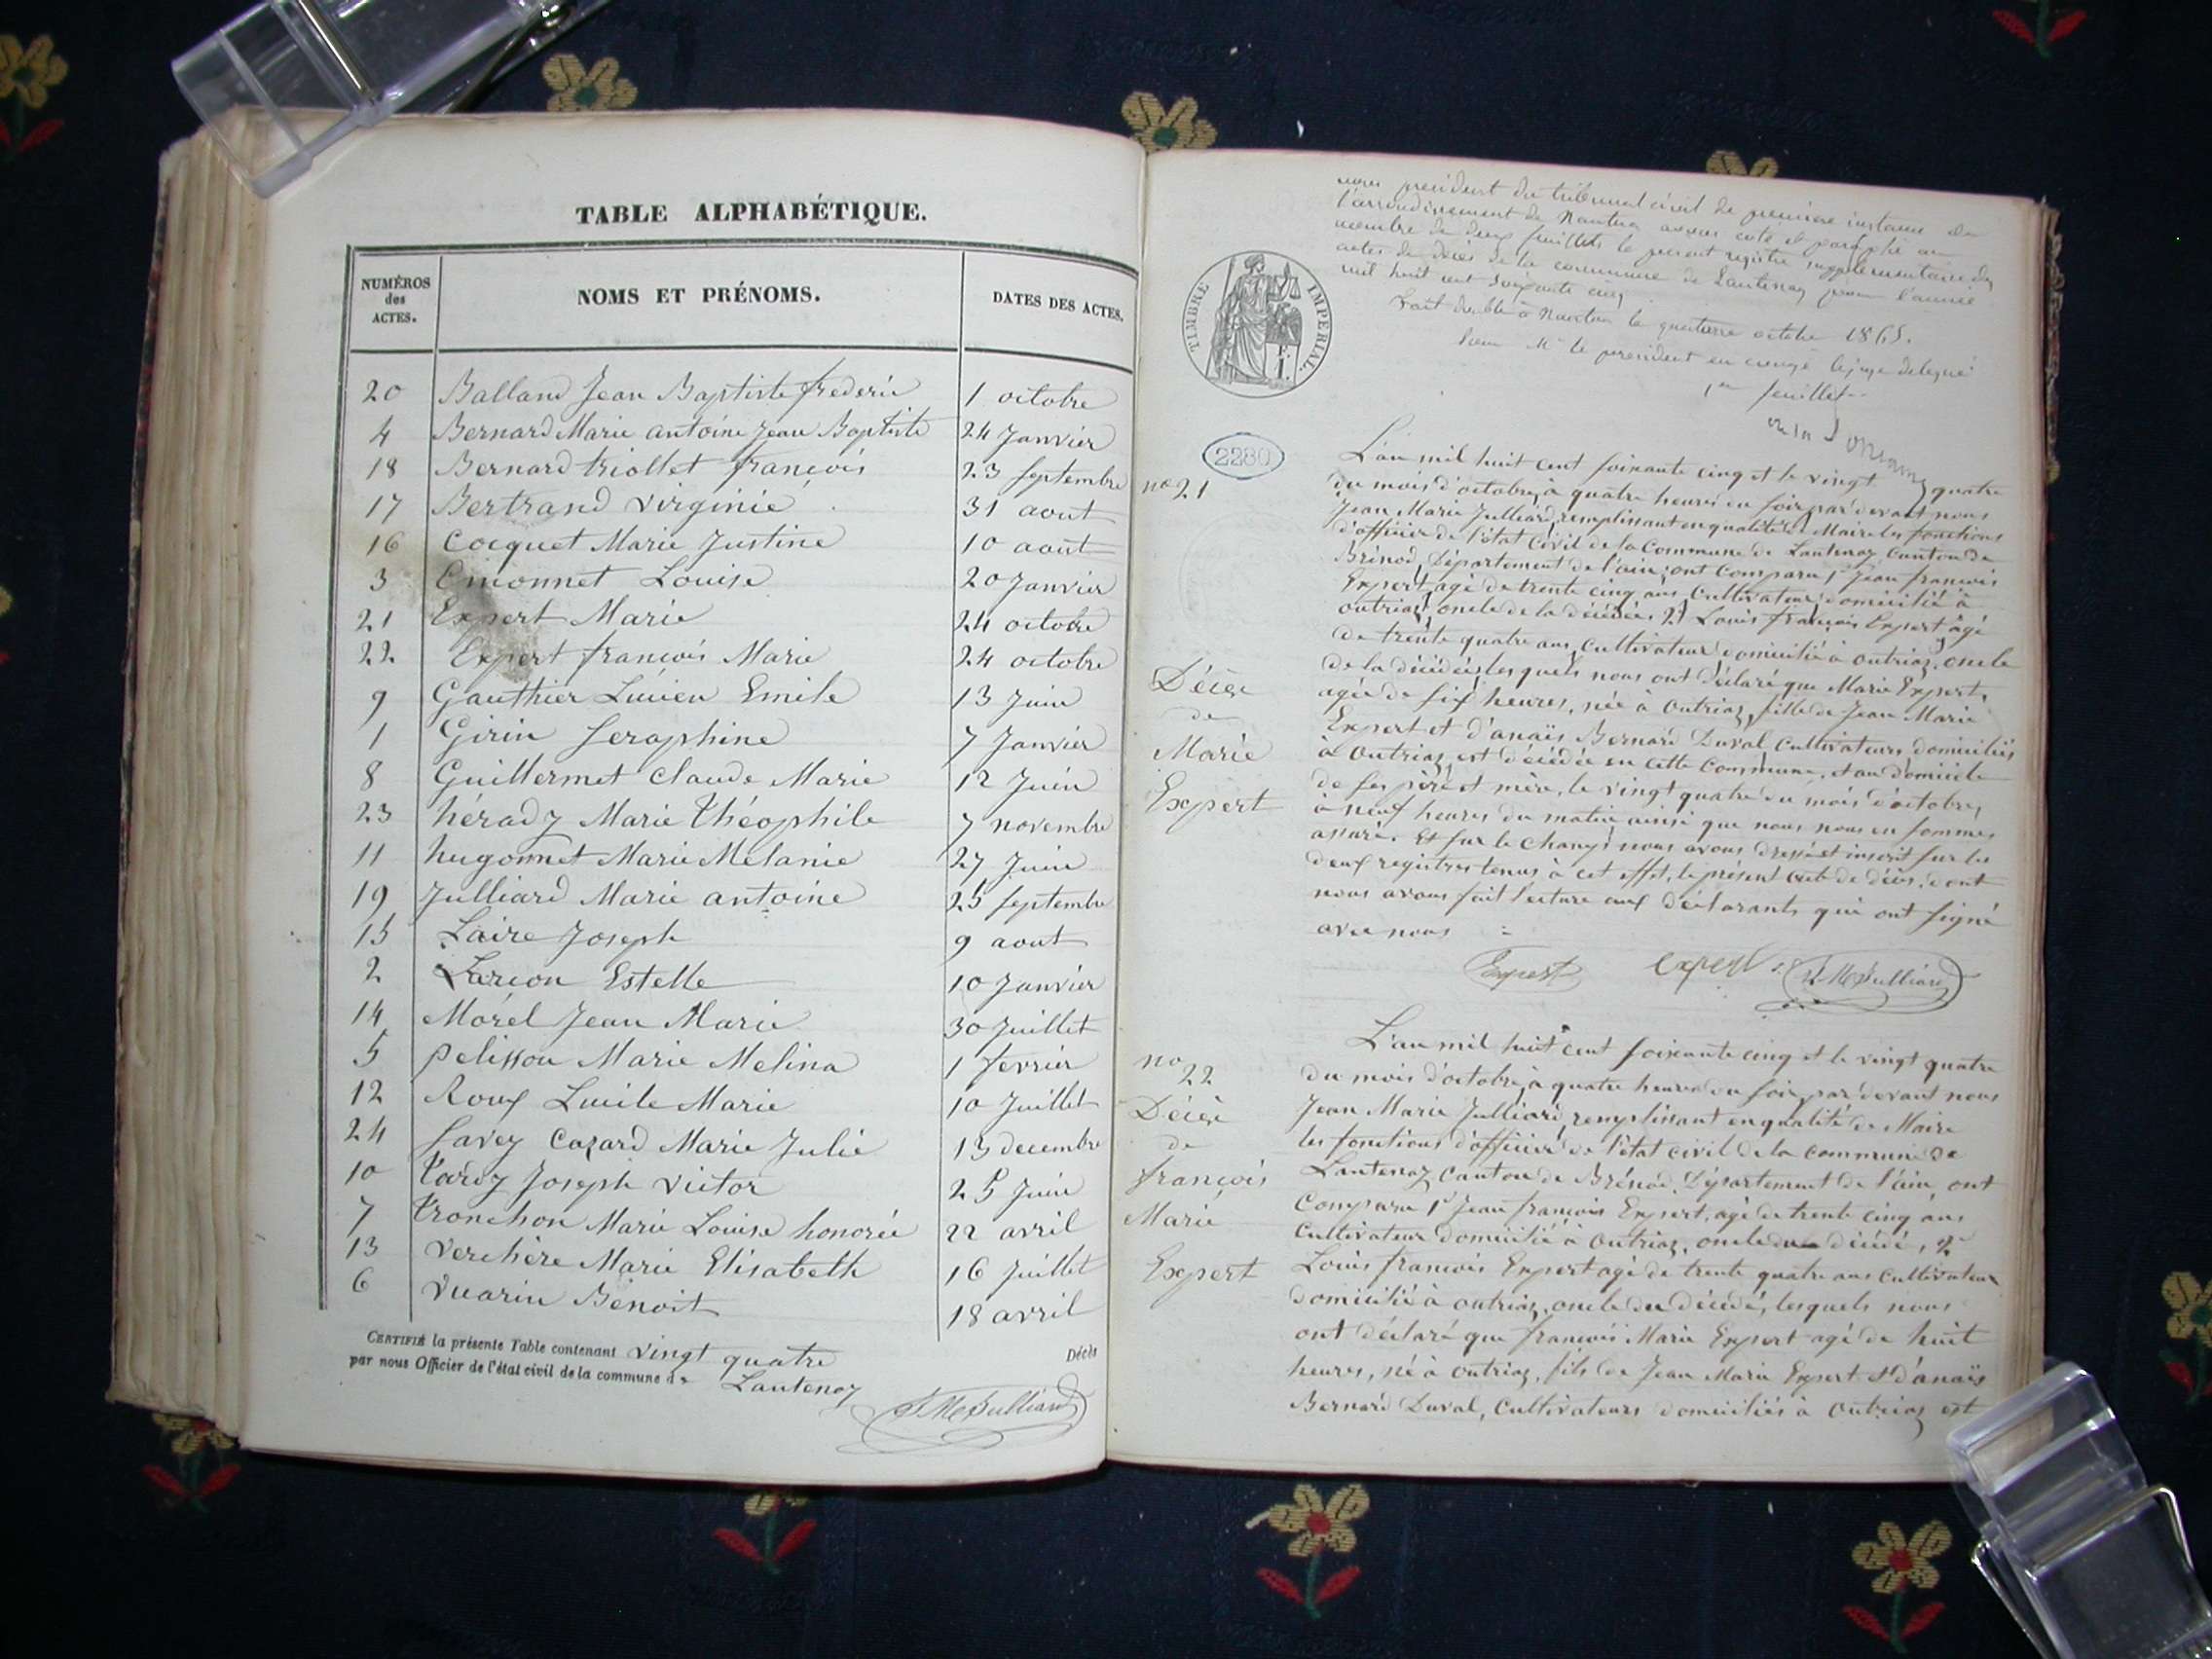 TABLE ALPHABÉTIQUE.
NUMÉROS des ACTES.
NOMS ET PRÉNOMS.
DATES DES ACTES.
20 Balland Jean Baptiste frederic 1 octobre
4 Bernard Marie antoine Jean Baptiste 24 Janvier
18 Bernard triollet françois 23 septembre
17 Bertrand virginie 31 aout
16 Cocquet Marie Justine 10 août
3 Emonnet Louise 20 Janvier
21 Expert Marie 24 octobre
22 Expert françois Marie 24 octobre
9 Gauthier Lucien Emile 13 Juin
1 Girin Seraphine 7 Janvier
8 Guillermet Claude Marie 12 Juin
23 hérady Marie théophile 7 novembre
11 hugonnet Marie Mélanie 27 Juin
19 Julliard Marie antoine 25 septembre
15 Laire Joseph 9 aout
2 Larçon Estelle 10 Janvier
14 Morel Jean Marie 30 Juillet
5 pelisson Marie Melina 1 fevrier
12 Roux Lucile Marie 10 Juillet
24 Savey Cazard Marie Julie 13 decembre
10 tardy Joseph victor 25 Juin
7 tronchon Marie Louise honorée 22 avril
13 Verchère Marie Elisabeth 16 Juillet
6 Vuarin Benoit 18 avril
CERTIFIÉ la présente Table contenant vingt quatre Décès
par nous Officier de l'état civil de la commune de Lantenay
J. M. Julliard
nous président du tribunal civil de première instance de
l'arrondissement de Nantua avons coté et paraphé au
nombre de deux feuillets le présent registre supplémentaire des
actes de décès de la commune de Lantenay pour l'année
mil huit cent soixante cinq
Fait double à Nantua le quatorze octobre 1865.
Pour Mr le président en congé le juge délégué
1er feuillet
TIMBRE IMPÉRIAL.
F. 1.
2280
no 21
Décès
de
Marie
Expert
L'an mil huit cent soixante cinq et le vingt quatre
du mois d'octobre, à quatre heures du soir par devant nous
Jean Marie Julliard, remplissant en qualité de Maire les fonctions
d'officier de l'état civil de la Commune de Lantenay Canton de
Brénod, Département de l'ain, ont comparu 1° Jean francois
Expert, agé de trente cinq ans Cultivateur, domicilié à
outriaz, oncle de la décédée. 2° Louis françois Expert agé
de trente quatre ans, Cultivateur, domicilié à outriaz, oncle
de la décédée, lesquels nous ont déclaré que Marie Expert,
agée de six heures, née à Outriaz, fille de Jean Marie
Expert et d'anaïs Bernard Duval, Cultivateurs, domiciliés
à Outriaz, est décédée en cette Commune, et au domicile
de ses père et mère, le vingt quatre du mois d'octobre,
à neuf heures du matin, ainsi que nous nous en sommes
assuré. Et sur le champ, nous avons dressé et inscrit sur les
deux registres tenus à cet effet, le présent acte de décès, dont
nous avons fait lecture aux déclarants qui ont signé
avec nous
Expert expert J. M. Julliard
no 22
Décès
de
françois
Marie
Expert
L'an mil huit cent soixante cinq et le vingt quatre
du mois d'octobre, à quatre heures du soir, par devant nous
Jean Marie Julliard, remplissant en qualité de Maire
les fonctions d'officier de l'état civil de la commune de
Lantenay Canton de Brénod, Département de l'ain, ont
Comparu 1° Jean francois Expert, agé de trente cinq ans
Cultivateur domicilié à outriaz, oncle du décédé, 2°
Louis francois Expert agé de trente quatre ans cultivateur
domicilié à outriaz, oncle du décédé, lesquels nous
ont déclaré que francois Marie Expert agé de huit
heures, né à outriaz, fils de Jean Marie Expert et d'anaïs
Bernard Duval, Cultivateurs domiciliés à outriaz est